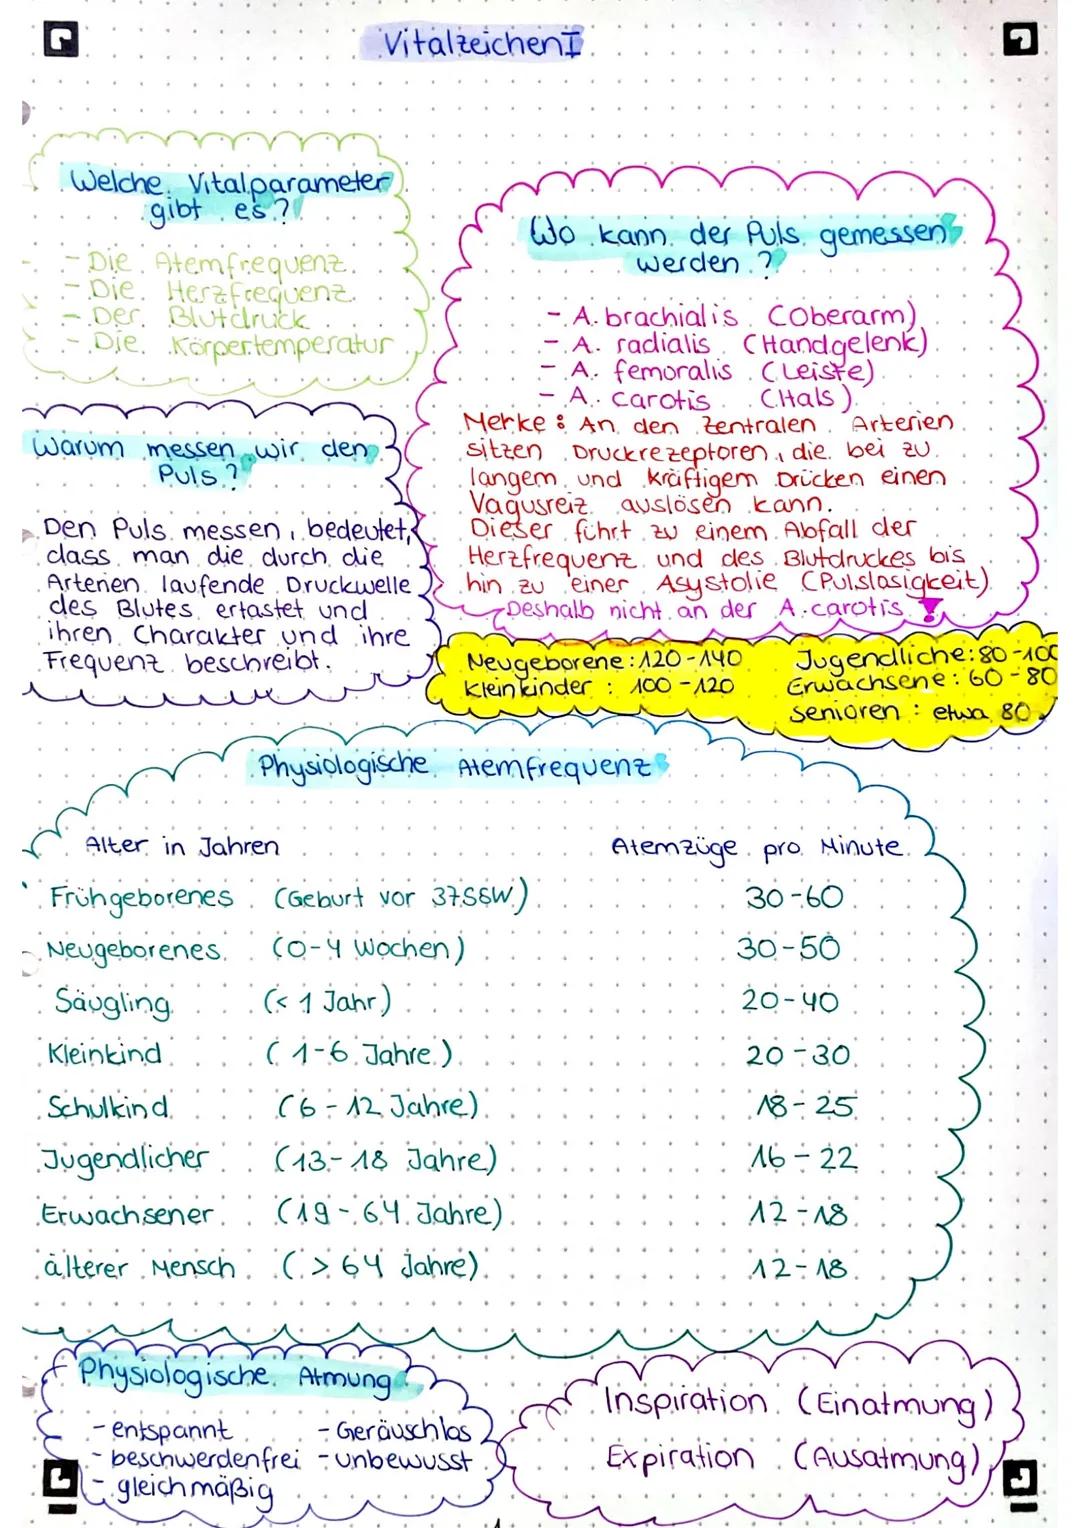 Vitalzeichen I
Welche Vitalparameter
gibt es?
- Die Atemfrequenz
- Die Herzfrequenz
- Der Blutdruck
- Die Körpertemperatur
Wo kann der Puls gemessen
werden?
- A. brachialis (Oberarm)
- A. radialis (Handgelenk)
- A. femoralis (Leiste)
- A. carotis (Hals)
Merke: An den zentralen Arterien
sitzen Druckrezeptoren, die bei zu
langem und kräftigem Drücken einen
Vagusreiz auslösen kann.
Dieser führt zu einem Abfall der
Herzfrequenz und des Blutdruckes bis
hin zu einer Asystolie (Pulslosigkeit)
Deshalb nicht an der A. carotis!
Warum messen wir den
Puls?
Den Puls messen, bedeutet,
dass man die durch die
Arterien laufende Druckwelle
des Blutes ertastet und
ihren Charakter und ihre
Frequenz beschreibt.
Neugeborene: 120-140
Kleinkinder: 100-120
Jugendliche: 80-100
Erwachsene: 60-80
Senioren: etwa 80
Physiologische Atemfrequenz
Alter in Jahren Atemzüge pro Minute
Frühgeborenes (Geburt vor 37SSW) 30-60
Neugeborenes (0-4 Wochen) 30-50
Säugling (< 1 Jahr) 20-40
Kleinkind (1-6 Jahre) 20-30
Schulkind (6-12 Jahre) 18-25
Jugendlicher (13-18 Jahre) 16-22
Erwachsener (19-64 Jahre) 12-18
älterer Mensch (> 64 Jahre) 12-18
Physiologische Atmung
- entspannt - Geräuschlos
- beschwerdenfrei - unbewusst
- gleichmäßig
Inspiration (Einatmung)
Expiration (Ausatmung)